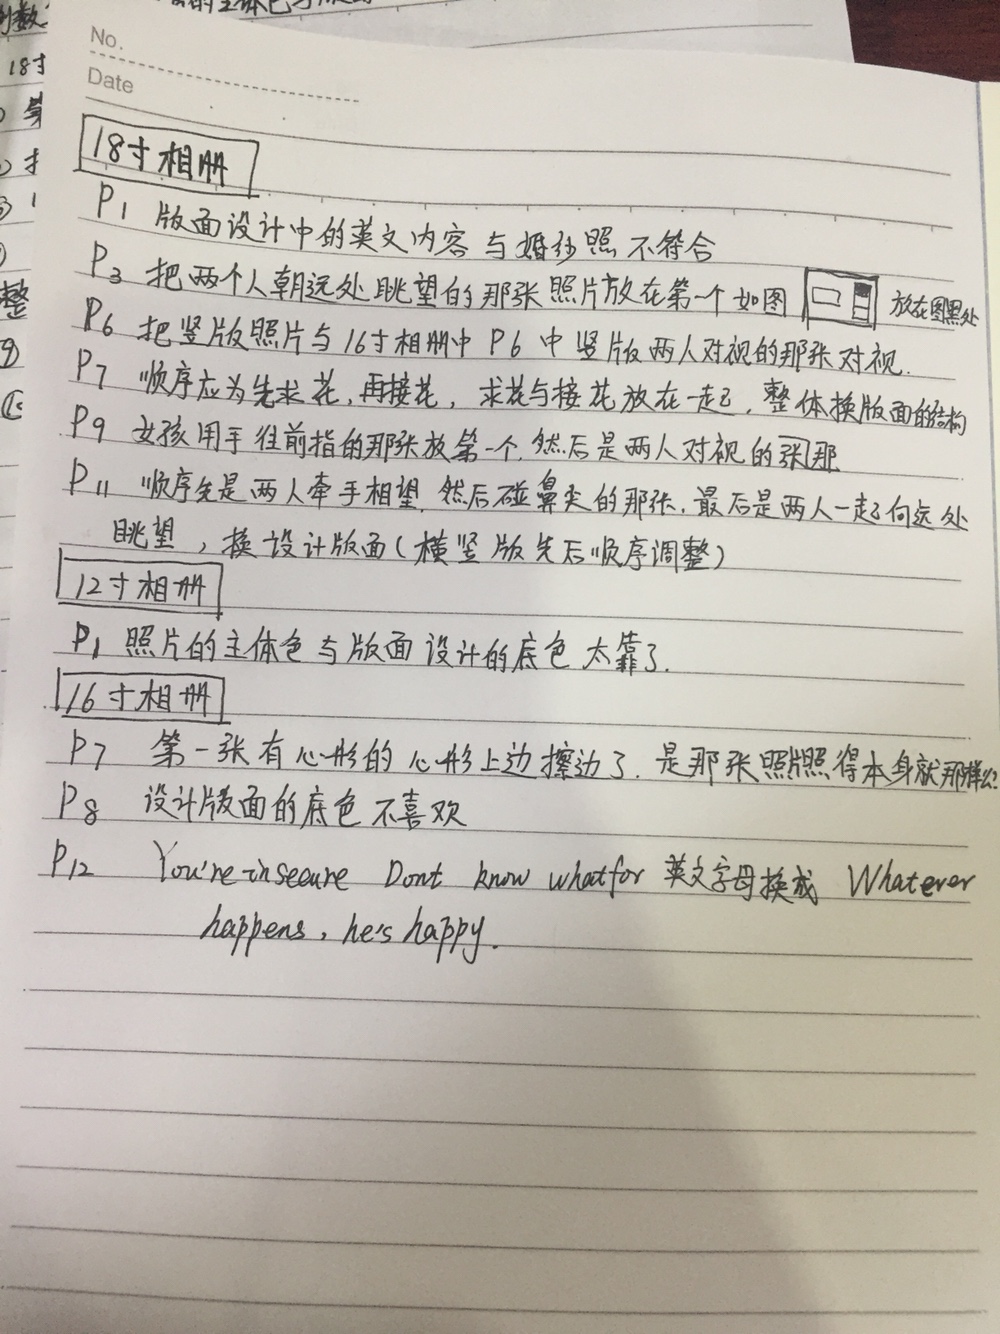 的主体色与版面
例数
18寸
整
No.
Date
18寸相册
P1 版面设计中的英文内容与婚纱照不符合
P3 把两个人朝远处眺望的那张照片放在第一个如图 放在图黑处
P6 把竖版照片与16寸相册中P6中竖版两人对视的那张对视.
P7 顺序应为先求花,再接花,求花与接花放在一起,整体换版面的结构
P9 女孩用手往前指的那张放第一个,然后是两人对视的张那
P11 顺序先是两人牵手相望,然后碰鼻尖的那张,最后是两人一起向远处
眺望,换设计版面(横竖版先后顺序调整)
12寸相册
P1 照片的主体色与版面设计的底色太靠了.
16寸相册
P7 第一张有心形的心形上边擦边了.是那张照片照得本身就那样么?
P8 设计版面的底色不喜欢
P12 You're insecure Dont know whatfor 英文字母换成 Whatever
happens, he's happy.